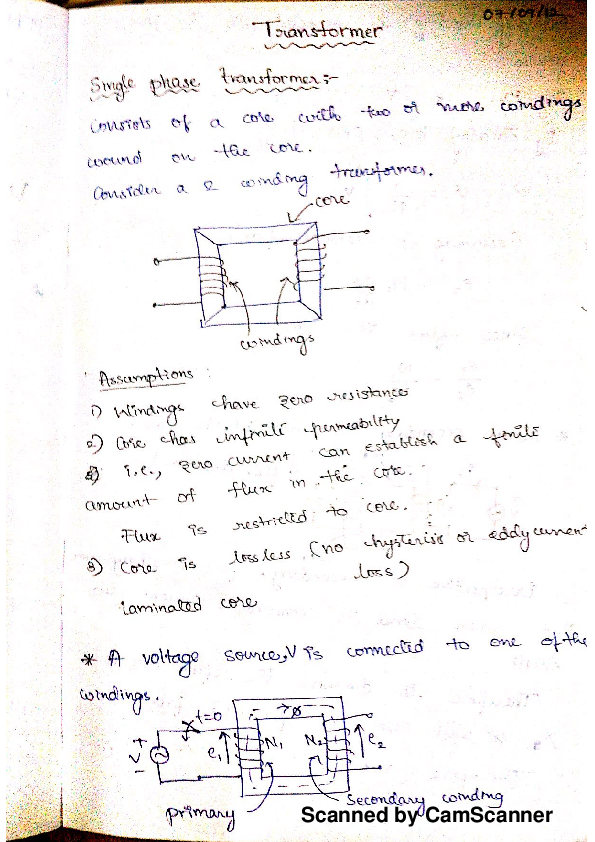 07/09/12
Transformer
Single phase transformer:-
Consists of a core with two or more windings
wound on the core.
Consider a 2 winding transformer.
core
windings
Assumptions :
1) Windings have zero resistance
2) Core has infinite permeability
i.e., zero current can establish a finite
amount of flux in the core.
Flux is restricted to core.
3) Core is lossless (no hysterisis or eddy current
loss)
laminated core
* A voltage source, V is connected to one of the
windings.
t=0
→ø
+
V
-
e1
N1
N2
e2
primary
Secondary winding
Scanned by CamScanner